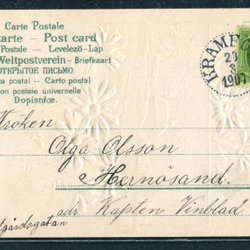 Carte Postale
karte - Post card
Postale - Levelező-Lap
Weltpostverein - Briefkaart
ОТКРЫТОЕ ПИСЬМО
postal - Cartão postal
postale universelle
Dopisnice.
KRAMF
20
1907
Fröken
Olga Olsson
Hernösand.
adr. Kapten Vinblad
gårdsgatan